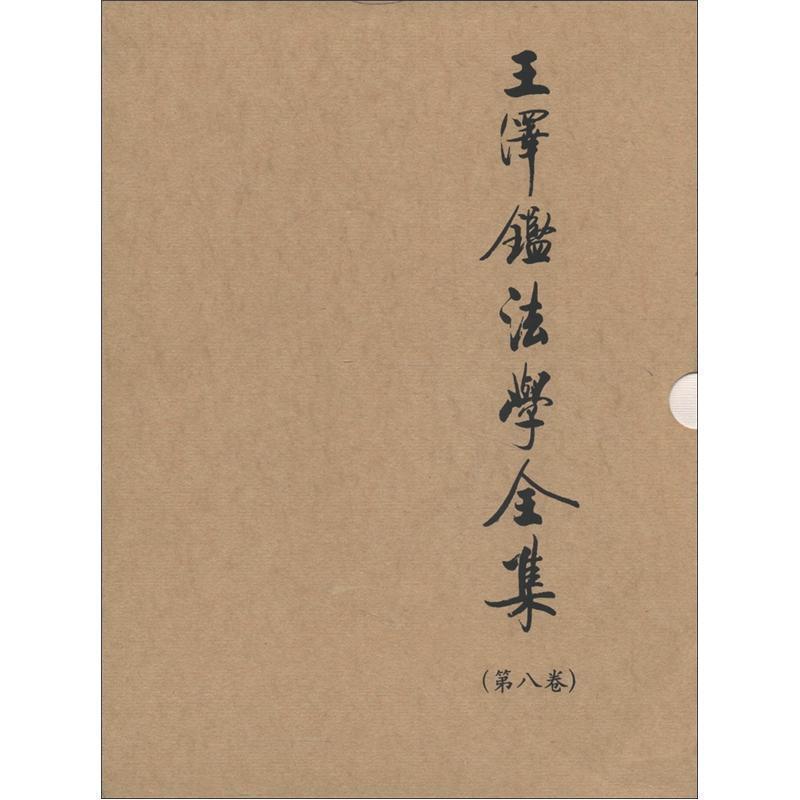 王澤鑑法學全集
(第八卷)